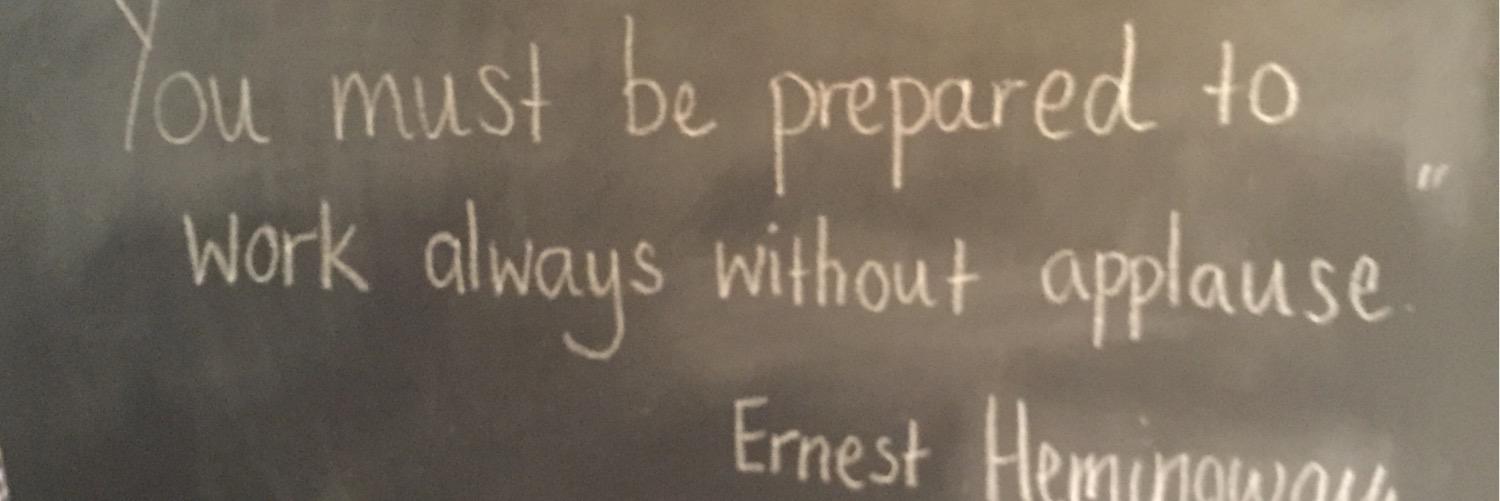 You must be prepared to
work always without applause."
Ernest Hemingway